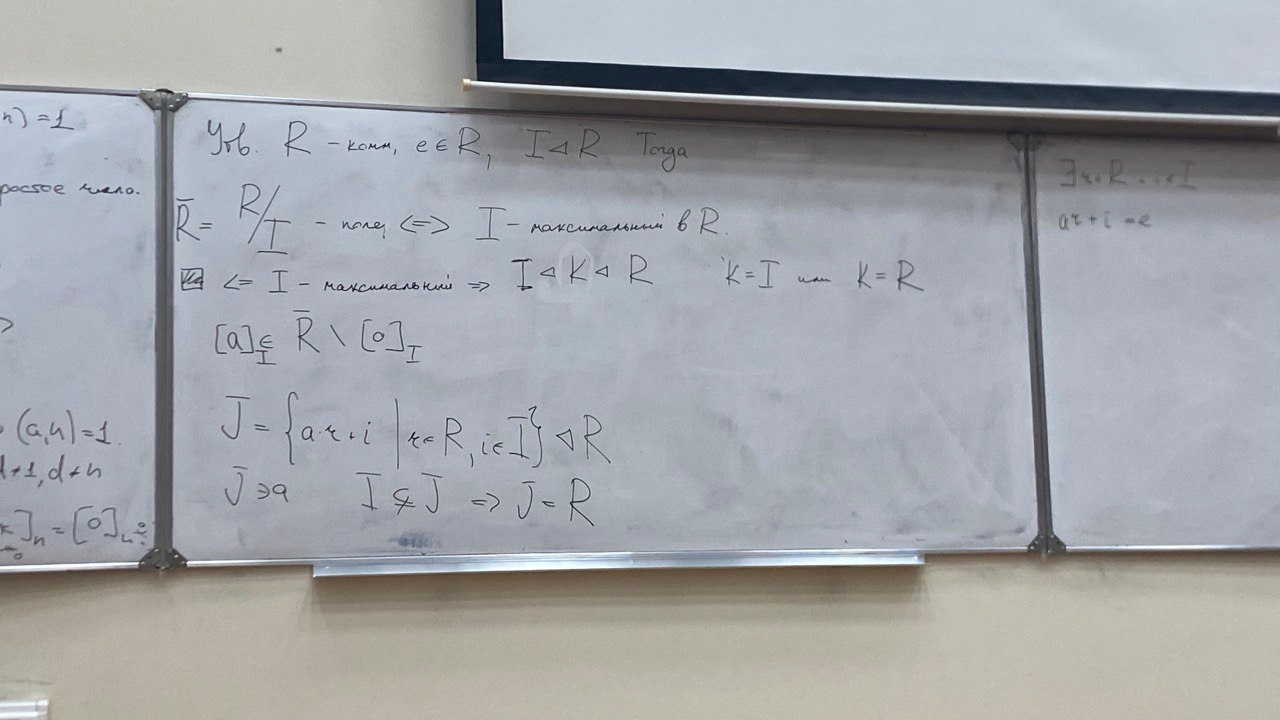 n) = 1
ростое число.
>
(a,n)=1.
d≠1, d≠n
]ₙ = [0]ₙ
Утв. R – комм, e ∈ R, I ⊲ R Тогда
R̄ = R/I – поле, <=> I – максимальный в R.
<= I – максимальный => I ⊲ K ⊲ R K = I или K = R
[a]_I ∈ R̄ \ [0]_I
J = {a·r+i | r∈R, i∈I} ⊲ R
J ∋ a I ⊊ J => J = R
∃r∈R, i∈I
ar+i = e